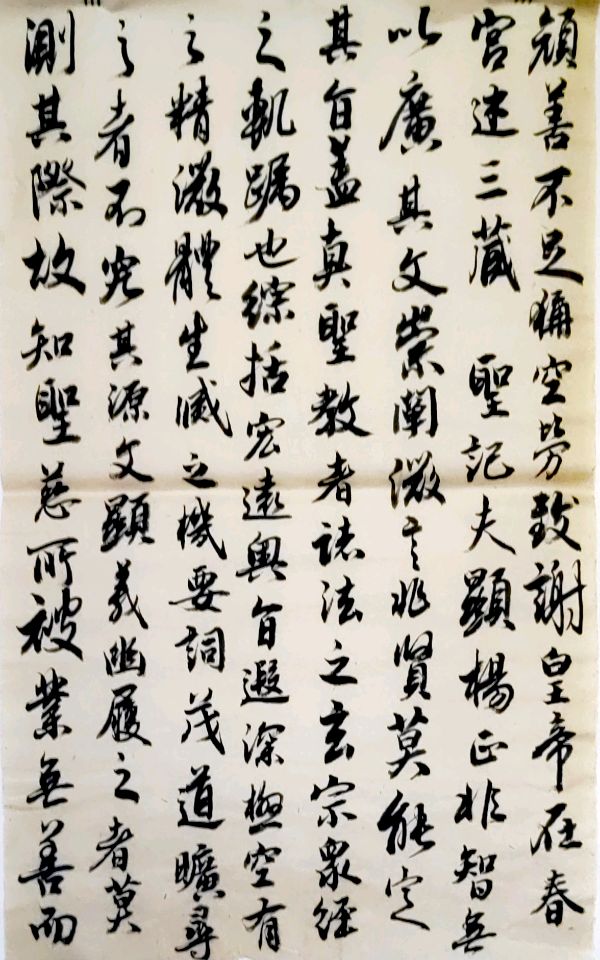 顏善不足稱空勞致謝皇帝在春
宮述三藏 聖記夫顯楊正非智無
以廣其文崇闡微言非賢莫能定
其旨蓋真聖教者諸法之玄宗衆經
之軌躅也綜括宏遠奧旨遐深極空有
之精微體生滅之機要詞茂道曠尋
之者不究其源文顯義幽履之者莫
測其際故知聖慈所被業無善而